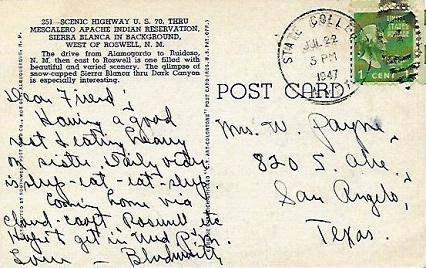 251—SCENIC HIGHWAY U. S. 70, THRU
MESCALERO APACHE INDIAN RESERVATION,
SIERRA BLANCA IN BACKGROUND,
WEST OF ROSWELL, N. M.
The drive from Alamogordo to Ruidoso,
N. M. then east to Roswell is one filled with
beautiful and varied scenery. The glimpse of
snow-capped Sierra Blanca thru Dark Canyon
is especially interesting.
Dear Friend,
Having a good
rest & eating heavy
on sister. Daily
sleep-eat-eat-sleep.
Coming home via
Cloud-croft Roswell etc
Hope to get in Wed P.m.
Love —
POST CARD
STATE COLLEGE
JUL 22
5 PM
1947
1 CENT 1
Mrs. W. Payne,
820 S. Ave.
San Angelo,
Texas.